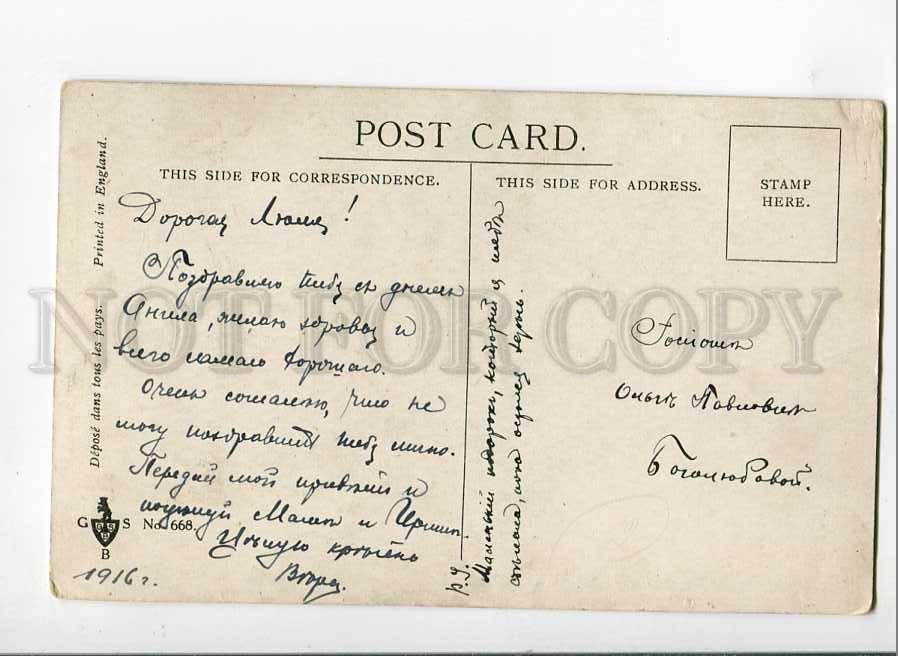 POST CARD.
THIS SIDE FOR CORRESPONDENCE.
THIS SIDE FOR ADDRESS.
STAMP
HERE.
Printed in England.
Déposé dans tous les pays.
G S
B
No. 668.
Дорогая Люля!
Поздравляю тебя съ днемъ
Ангела, желаю здоровья и
всего самаго хорошаго.
Очень сожалею, что не
могу поздравить тебя лично.
Передай мой привѣтъ и
поцѣлуй и
Цѣлую крѣпко
1916 г.
P.S.
Маленькій который я тебѣ
Госпожѣ
Ольгѣ Павловнѣ
Боголюбовой.
NOT FOR COPY